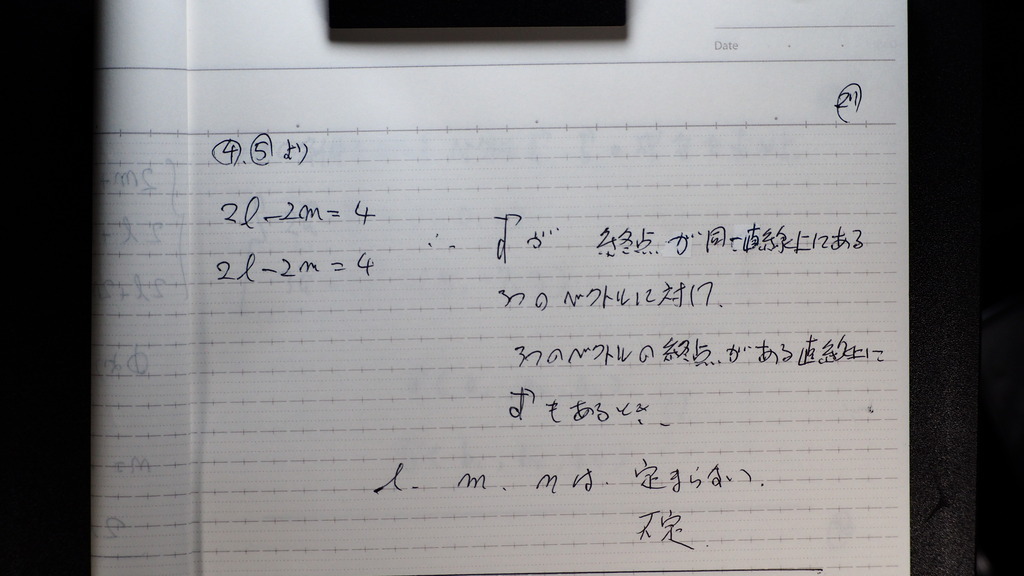 Date
④.⑤ より
2l-2m=4
2l-2m=4
∴ d⃗ が 終点が同一直線上にある
3つのベクトルに対して、
3つのベクトルの終点がある直線上に
d⃗ もあるとき、
l. m. nは. 定まらない.
不定.